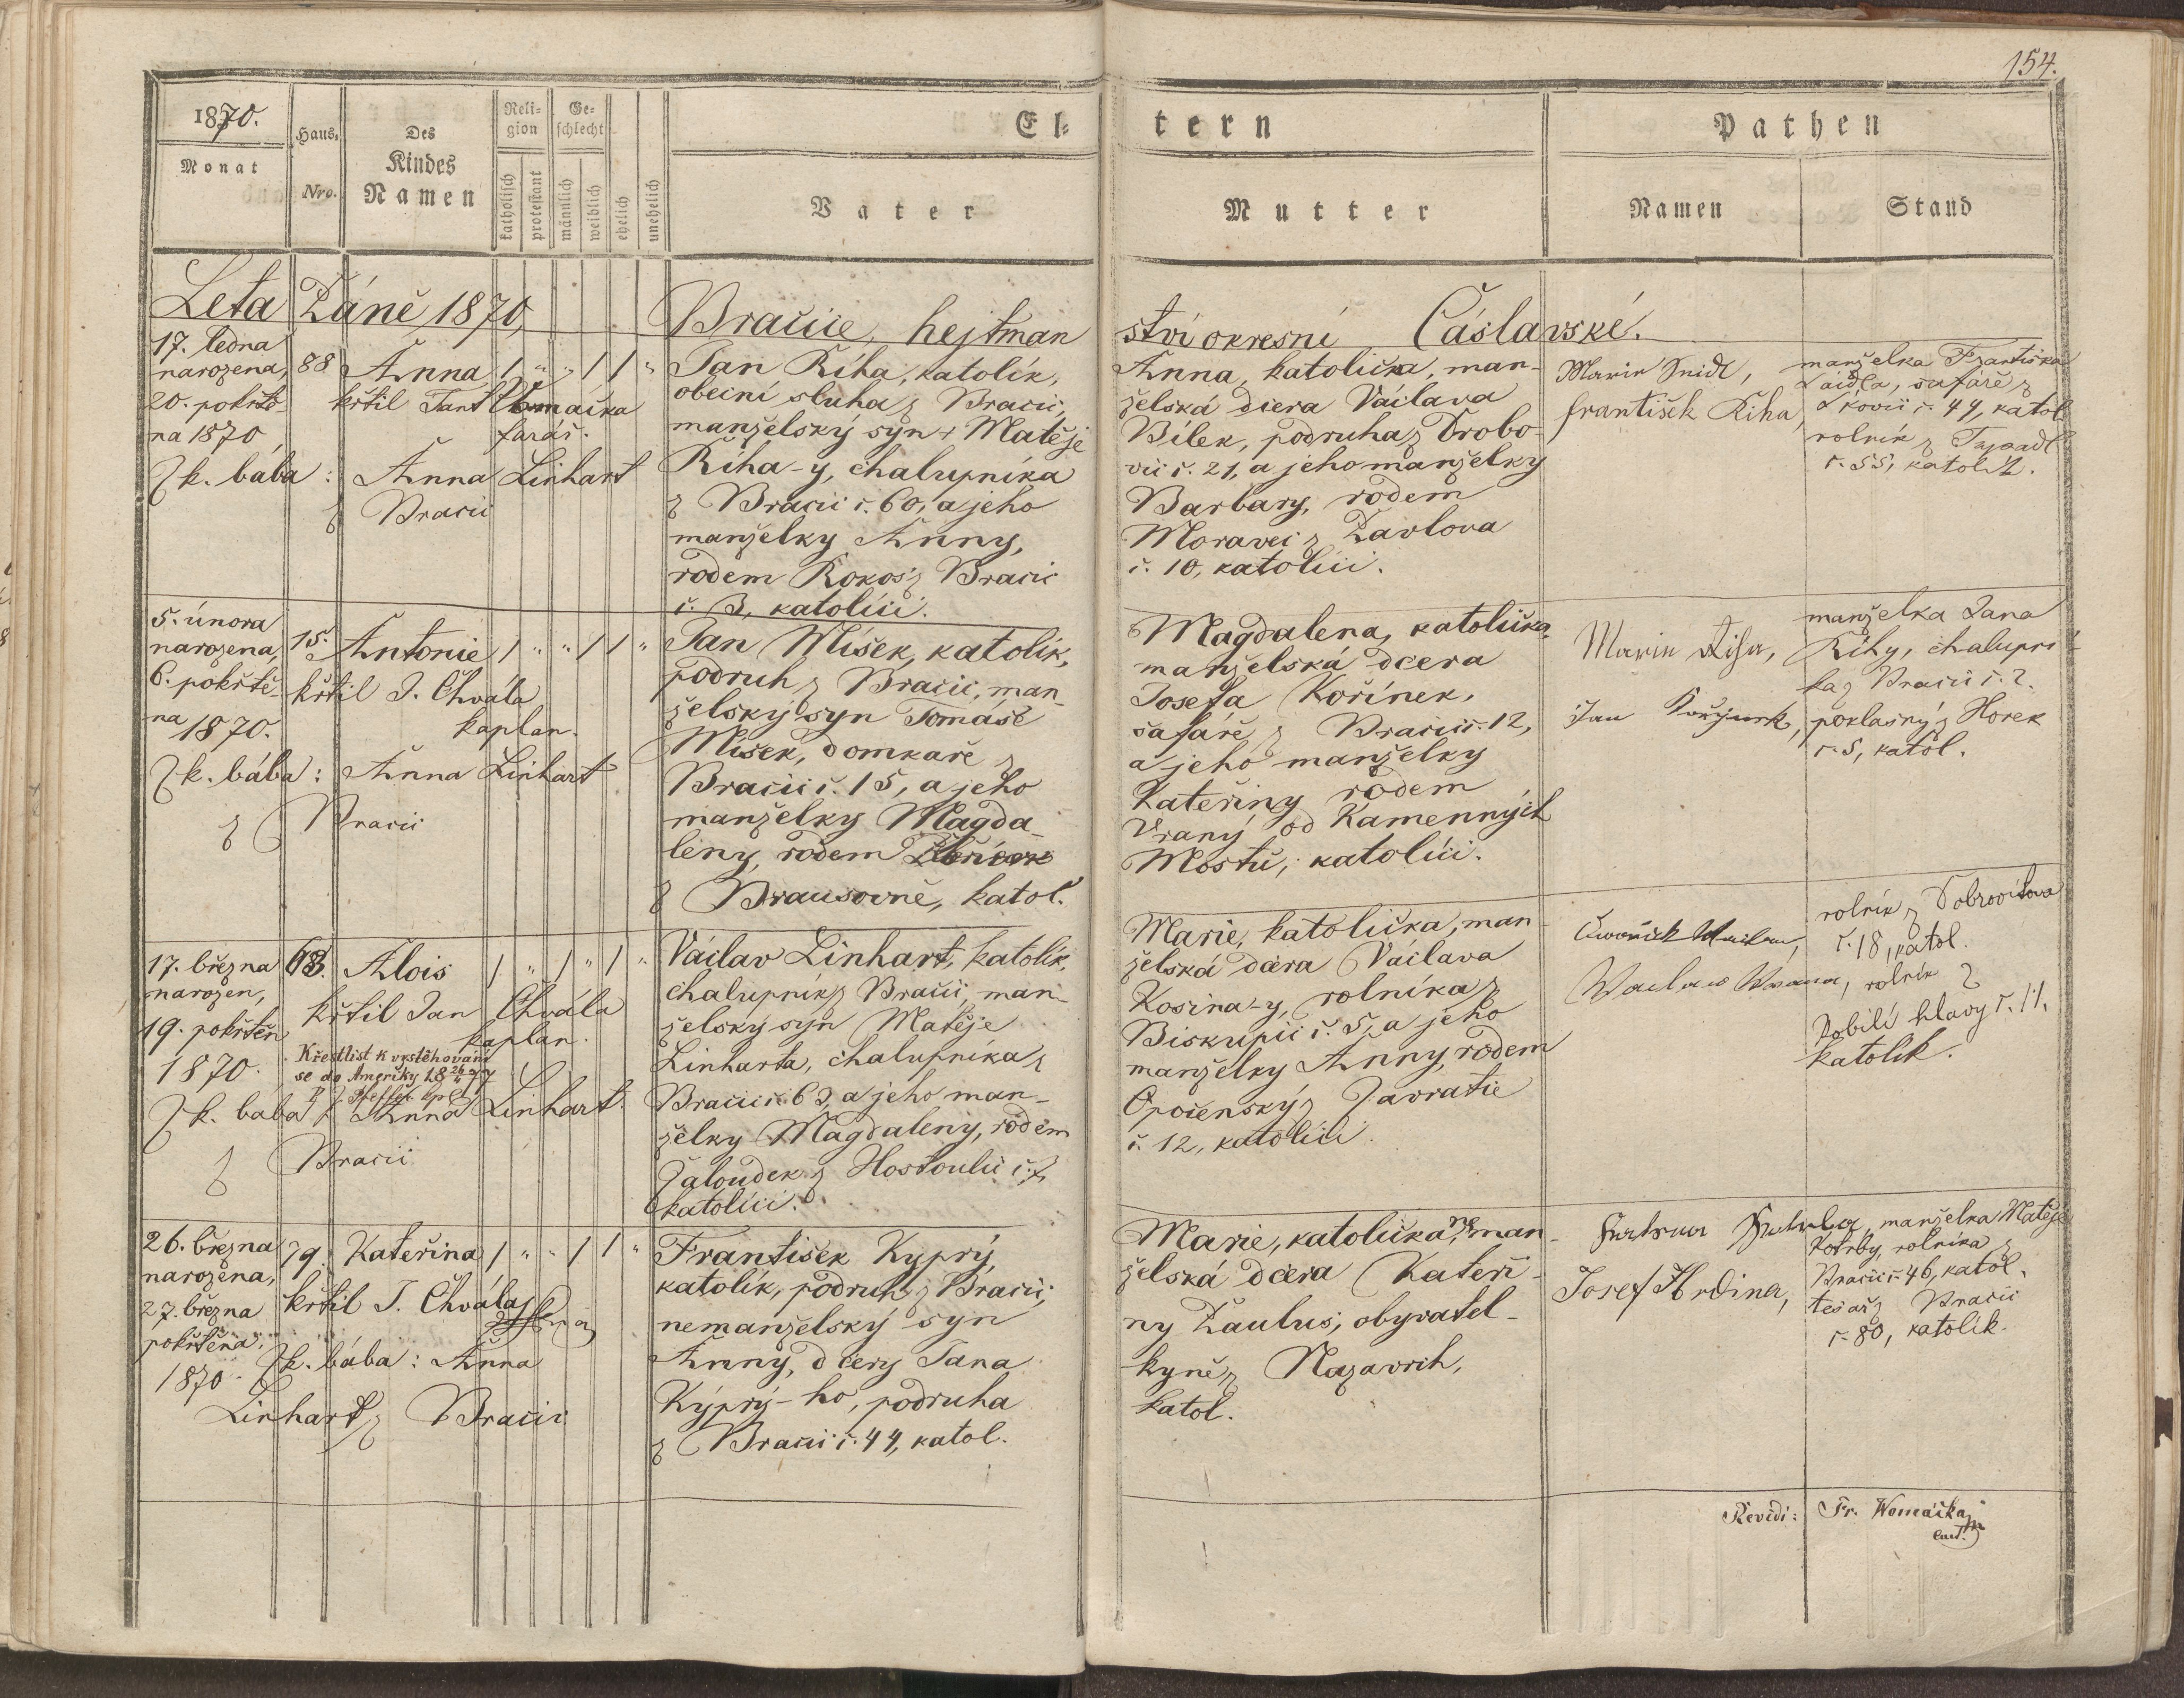 154.
1870.
Monat
Haus-
Nro.
Des
Kindes
Namen
Reli-
gion
katholisch
protestant
Ge-
schlecht
männlich
weiblich
ehelich
unehelich
El-
tern
Vater
Mutter
Pathen
Namen
Stand
Leta Páně 1870, Bračice, hejtman
ství okresní Čáslavské.
17. ledna
narozena,
20. pokřtě-
na 1870,
88
Anna
křtil Jan
farář.
Zk. bába: Anna Linhart
z Bračic
1 " " 1 1 "
Jan Říha, katolík,
obecní sluha z Bračic,
manželský syn + Matěje
Říha-y, chalupníka
z Bračic č. 60, a jeho
manželky Anny,
rodem Kokoš z Bračic
č. 3, katolíci.
Anna, katolička, man-
želská dcera Václava
Bílek, podruha z Drobo-
vic č. 21, a jeho manželky
Barbary, rodem
Moravec z Pavlova
č. 10, katolíci.
František Říha,
manželka Františka
šafáře z
č. 44, katol
rolník z
č. 55, katolík.
5. února
narozena,
6. pokřtě-
na
1870.
15.
Antonie
křtil J. Chvála
kaplan.
Zk. bába: Anna Linhart
z Bračic
1 " " 1 1 "
Jan Míšek, katolík,
podruh z Bračic, man-
želský syn Tomáše
Míšek, domkaře z
Bračic č. 15, a jeho
manželky Magda-
leny, rodem
z Brausovně, katol.
Magdalena, katolička,
manželská dcera
Josefa Kořínek,
šafáře z Bračic č. 12,
a jeho manželky
Kateřiny rodem
Vraný od Kamenných
Mostů, katolíci.
Marie Říha,
Jan
manželka Jana
Říhy, chalupní-
ka z Bračic č. 2.
poklasný z Horek
č. 5, katol.
17. března
narozen,
19. pokřtěn
1870.
63.
Alois
křtil Jan Chvála
kaplan.
Křestlist k vystěhování
se do Ameriky 18 26/4 77
Zk. baba: Anna Linhart
z Bračic
1 " 1 " 1 "
Václav Linhart, katolík,
chalupník z Bračic, man-
želský syn Matěje
Linharta, chalupníka z
Bračic č. 63, a jeho man-
želky Magdaleny, rodem
Žaloudek z Hostoulic č. 7,
katolíci.
Marie, katolička, man-
želská dcera Václava
Kosina-y, rolníka z
Biskupic č. 5, a jeho
manželky Anny, rodem
Opočenský z Zavratce
č. 12, katolíci.
Waclaw Wrána,
rolník z Dobrovítova
č. 18, katol.
rolník z
Kobilí hlavy č. 11.
katolík.
26. března
narozena,
27. března
pokřtěna.
1870.
79.
Kateřina
křtil J. Chvála
Zk. bába: Anna
Linhart z Bračic
1 " " 1 1 "
František Kyprý,
katolík, podruh z Bračic,
nemanželský syn
Anny, dcery Jana
Kýprý-ho, podruha
z Bračic č. 44, katol.
Marie, katolička, neman-
želská dcera Kateři-
ny Paulus, obyvatel-
kyně z Nazavrch,
katol.
Josef Hrdina,
manželka Matěje
Kotrby, rolníka z
Bračic č. 46, katol.
tesař z Bračic
č. 80, katolík.
Revidi: Fr. Womáčka